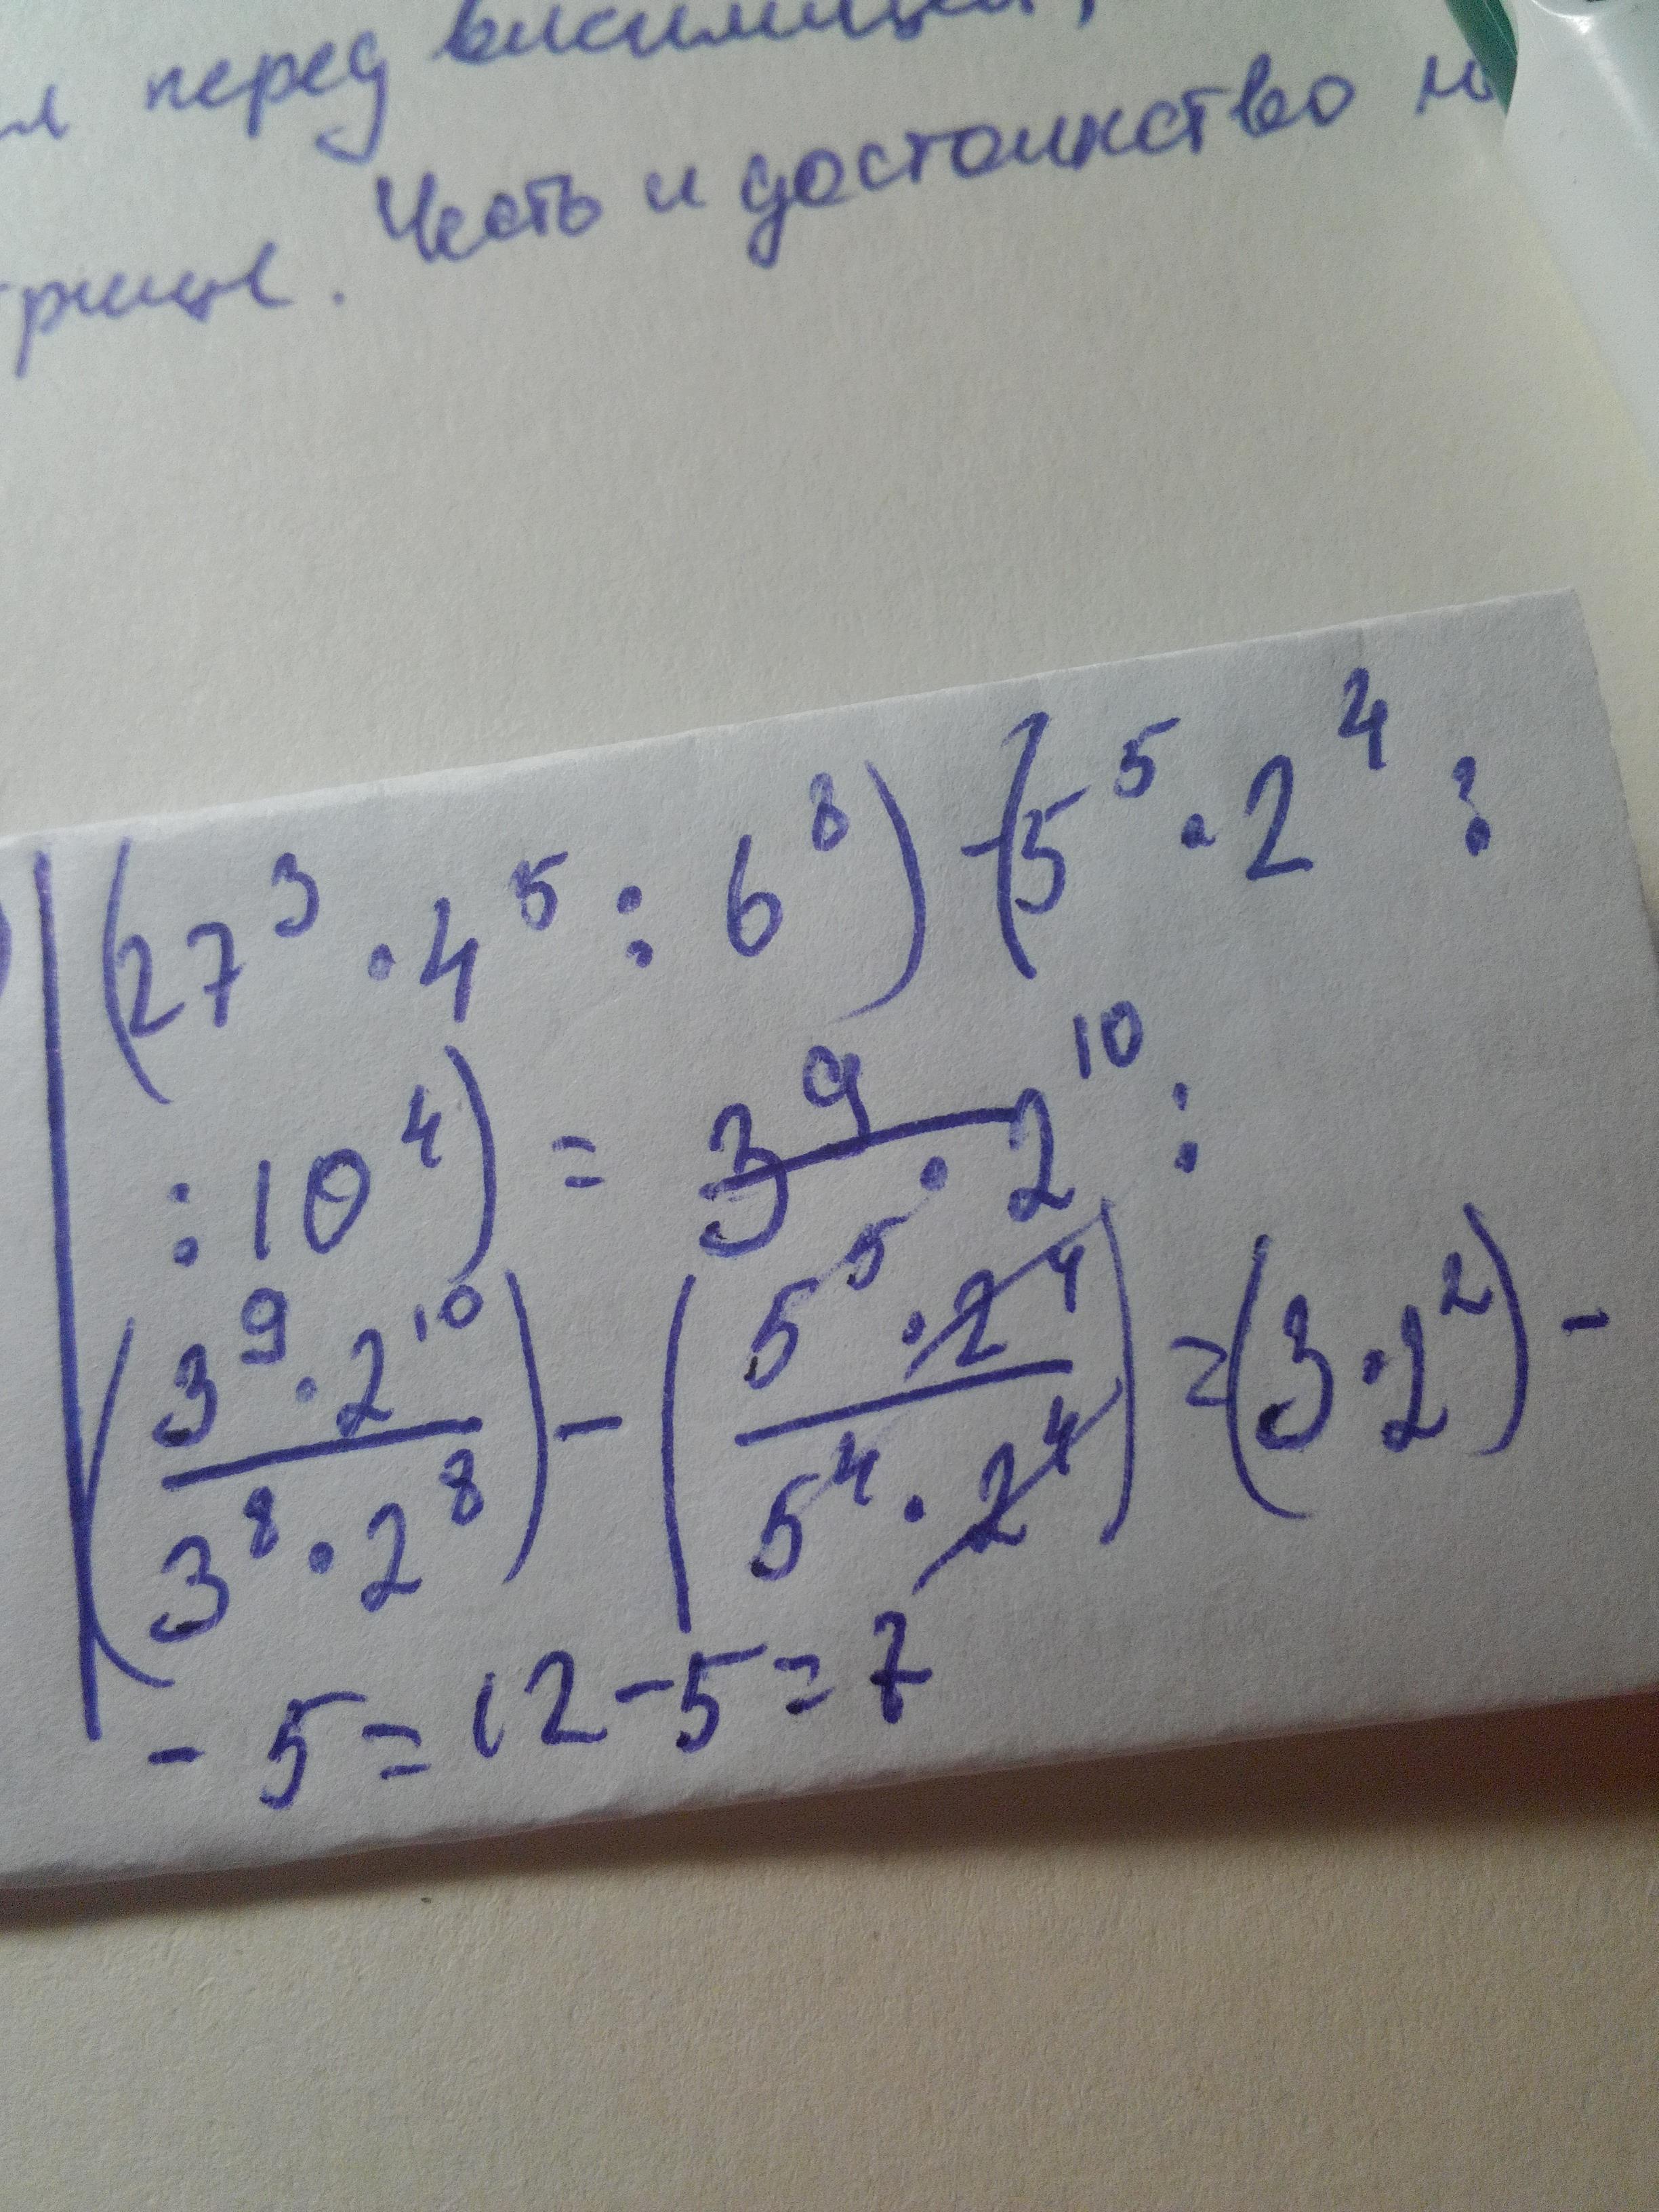 перед
. Честь и достоинство
(27³ · 4⁵ : 6⁸) - (5⁵ · 2⁴ :
: 10⁴) = 3⁹ · 2¹⁰ :
(3⁹ · 2¹⁰ / 3⁸ · 2⁸) - (5⁵ · 2⁴ / 5⁴ · 2⁴) = (3 · 2²) -
- 5 = 12 - 5 = 7